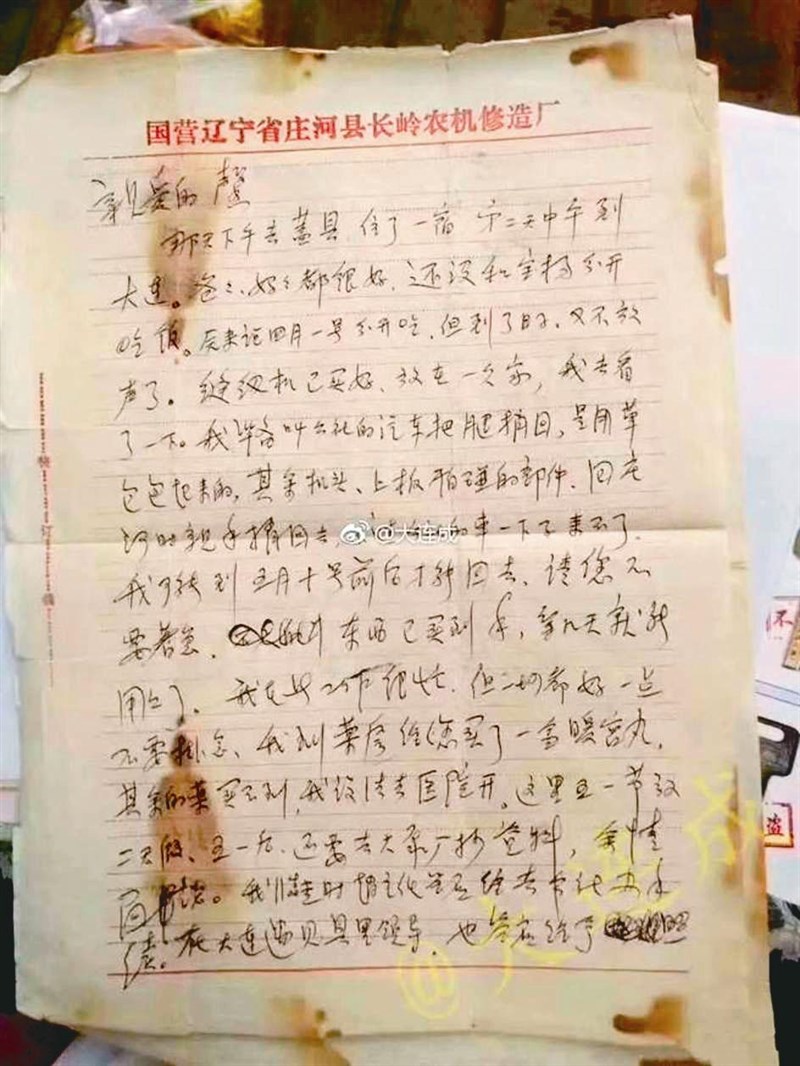 国营辽宁省庄河县长岭农机修造厂
亲爱的馨
那天下午去盖县,住了一宿 第二天中午到
大连。爸爸、妈妈都很好,还没和宝杨分开
吃饭。原来说四月一号分开吃,但到了日子,又不放
声了。缝纫机已买好,放在一久家,我去看
了一下。我准备叫公社的汽车把腿捎回,是用草
包包起来的,其余机头、上板怕碰的部件,回庄
河时亲手捎回去,
@大连成
车一下子来不了。
我可能到五月十号前后才能回去,请您不
要着急。
东西已买到手,等几天就能
用上了。我在此工作很忙,但一切都好一点
不要挂念,我到药房给您买了一盒暖宫丸,
其余的药买不到,我设法去医院开。这里五一节放
二天假,五一后,还要去大
厂抄资料,余情
面谈。我
时
给
办手
续。在大连遇见县里领导,也答应给予
@大连成